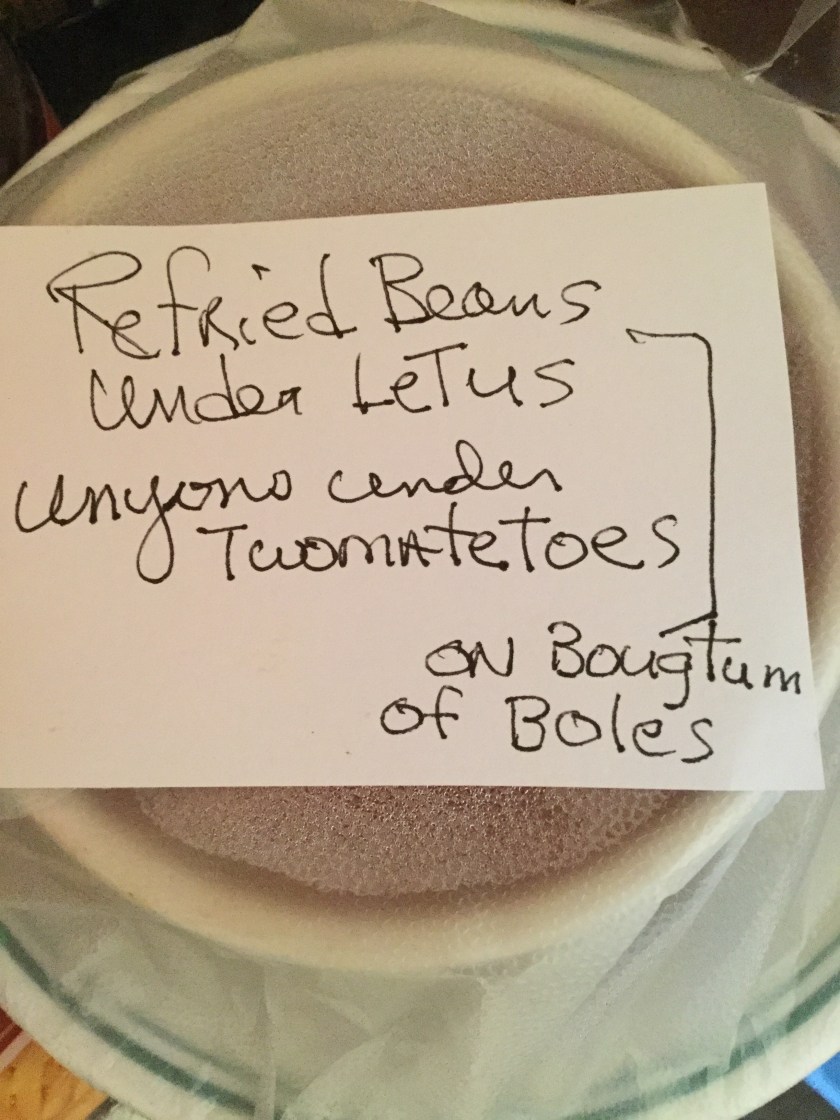 Refried Beans
under Letus
unyons under
Tuomatetoes
on Bougtum
of Boles